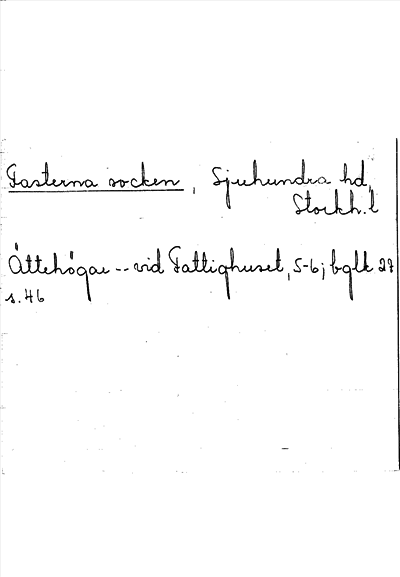 Fasterna socken, Sjuhundra hd,
Stockh. l
Ättehögar -- vid Fattighuset, 5-6; bglk 27
s. 46